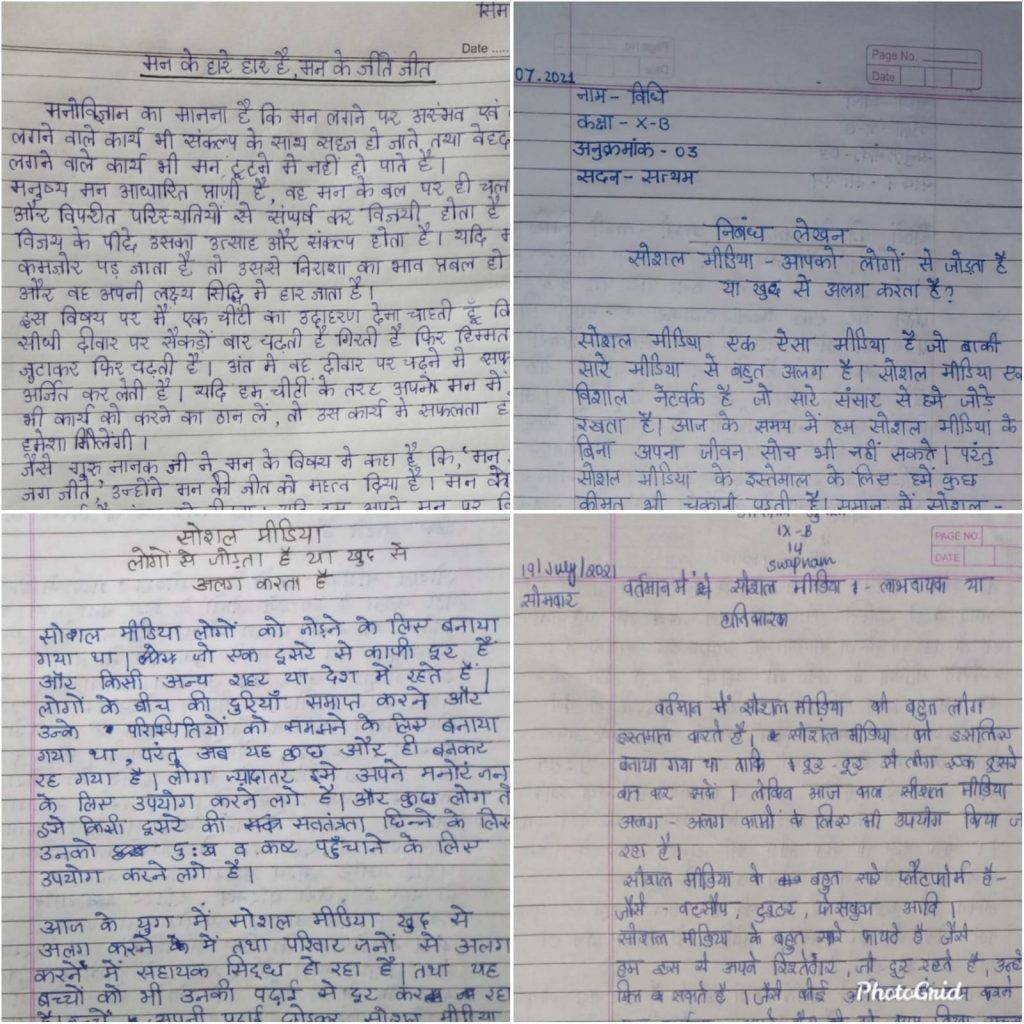 सिम
Date .....
मन के हारे हार है, मन के जीते जीत
मनोविज्ञान का मानना है कि मन लगने पर असंभव एवं
लगने वाले कार्य भी संकल्प के साथ सहज हो जाते, तथा बेहद
लगने वाले कार्य भी मन टूटने में नहीं हो पाते है।
मनुष्य मन आधारित प्राणी है, वह मन के बल पर ही चल
और विपरीत परिस्थतियों से संघर्ष कर विजयी होता है
विजय के पीछे उसका उत्साह और संकल्प होता है। यदि
कमजोर पड़ जाता है तो उससे निराशा का भाव प्रबल हो
और वह अपनी लक्ष्य सिद्धि मे हार जाता है।
इस विषय पर मैं एक चींटी का उदाहरण देना चाहती हूँ
सीधी दीवार पर सैकड़ों बार चढ़ती है गिरती है फिर हिम्मत
जुटाकर फिर चढ़ती है। अंत मे वह दीवार पर चढ़ने मे सफ
अर्जित कर लेती है। यदि हम चींटी के तरह अपने मन में
भी कार्य को करने का ठान लें, तो उस कार्य मे सफलता
हमेशा मिलेंगी।
जैसे गुरु नानक जी ने मन के विषय मे कहा है कि, 'मन
जग जीते', उन्होंने मन की जीत को महत्व दिया है। मन को
Page No.
Date
07.2021
नाम - विधि
कक्षा - X-B
अनुक्रमांक - 03
सदन - सत्यम
निबंध लेखन
सोशल मीडिया - आपको लोगों से जोड़ता है
या खुद से अलग करता है?
सोशल मीडिया एक ऐसा मीडिया है जो बाकी
सारे मीडिया से बहुत अलग है। सोशल मीडिया एक
विशाल नेटवर्क है जो सारे संसार से हमे जोड़े
रखता है। आज के समय में हम सोशल मीडिया के
बिना अपना जीवन सोच भी नहीं सकते। परंतु
सोशल मीडिया के इस्तेमाल के लिए हमें कुछ
कीमत भी चुकानी पड़ती है। समाज में सोशल -
सोशल मीडिया
लोगों से जोड़ता है या खुद से
अलग करता है
सोशल मीडिया लोगों को जोड़ने के लिए बनाया
गया था। जो एक दूसरे से काफी दूर हैं
और किसी अन्य शहर या देश में रहते हैं।
लोगों के बीच की दुरियाँ समाप्त करने और
उनके परिस्थितियों को समझने के लिए बनाया
गया था, परंतु अब यह कुछ और ही बनकर
रह गया है। लोग ज्यादातर इसे अपने मनोरंजन
के लिए उपयोग करने लगे है। और कुछ लोग तो
इसे किसी दूसरे की सवतंत्रता छिन्ने के लिए
उनको दुःख व कष्ट पहुँचाने के लिए
उपयोग करने लगे हैं।
आज के युग में सोशल मीडिया खुद से
अलग करने में तथा परिवार जनों से अलग
करने में सहायक सिद्ध हो रहा है। तथा यह
बच्चों को भी उनकी पढाई से दूर कर रहा
अपनी पढाई छोडकर सोशल मीडिया
IX-B
14
swapnam
PAGE NO.
DATE
19/July/2021
सोमवार
वर्तमान में सोशल मीडिया - लाभदायक या
हानिकारक
वर्तमान में सोशल मीडिया को बहुत लोग
इस्तमाल करते हैं। सोशल मीडिया को इसलिए
बनाया गया था ताकि दूर-दूर से लोग एक दूसरे
बात कर सकें। लेकिन आज कल सोशल मीडिया
अलग-अलग कामों के लिए भी उपयोग किया जा
रहा है।
सोशल मीडिया के बहुत सारे प्लैटफोर्म है-
जैसे - वट्सैप, ट्वटर, फेसबुक आदि।
सोशल मीडिया के बहुत सारे फायदे है जैसे
हम इस से अपने रिश्तेदार, जो दूर रहते है, उन्हे
मिल सकते है। जैसे कोई
PhotoGrid